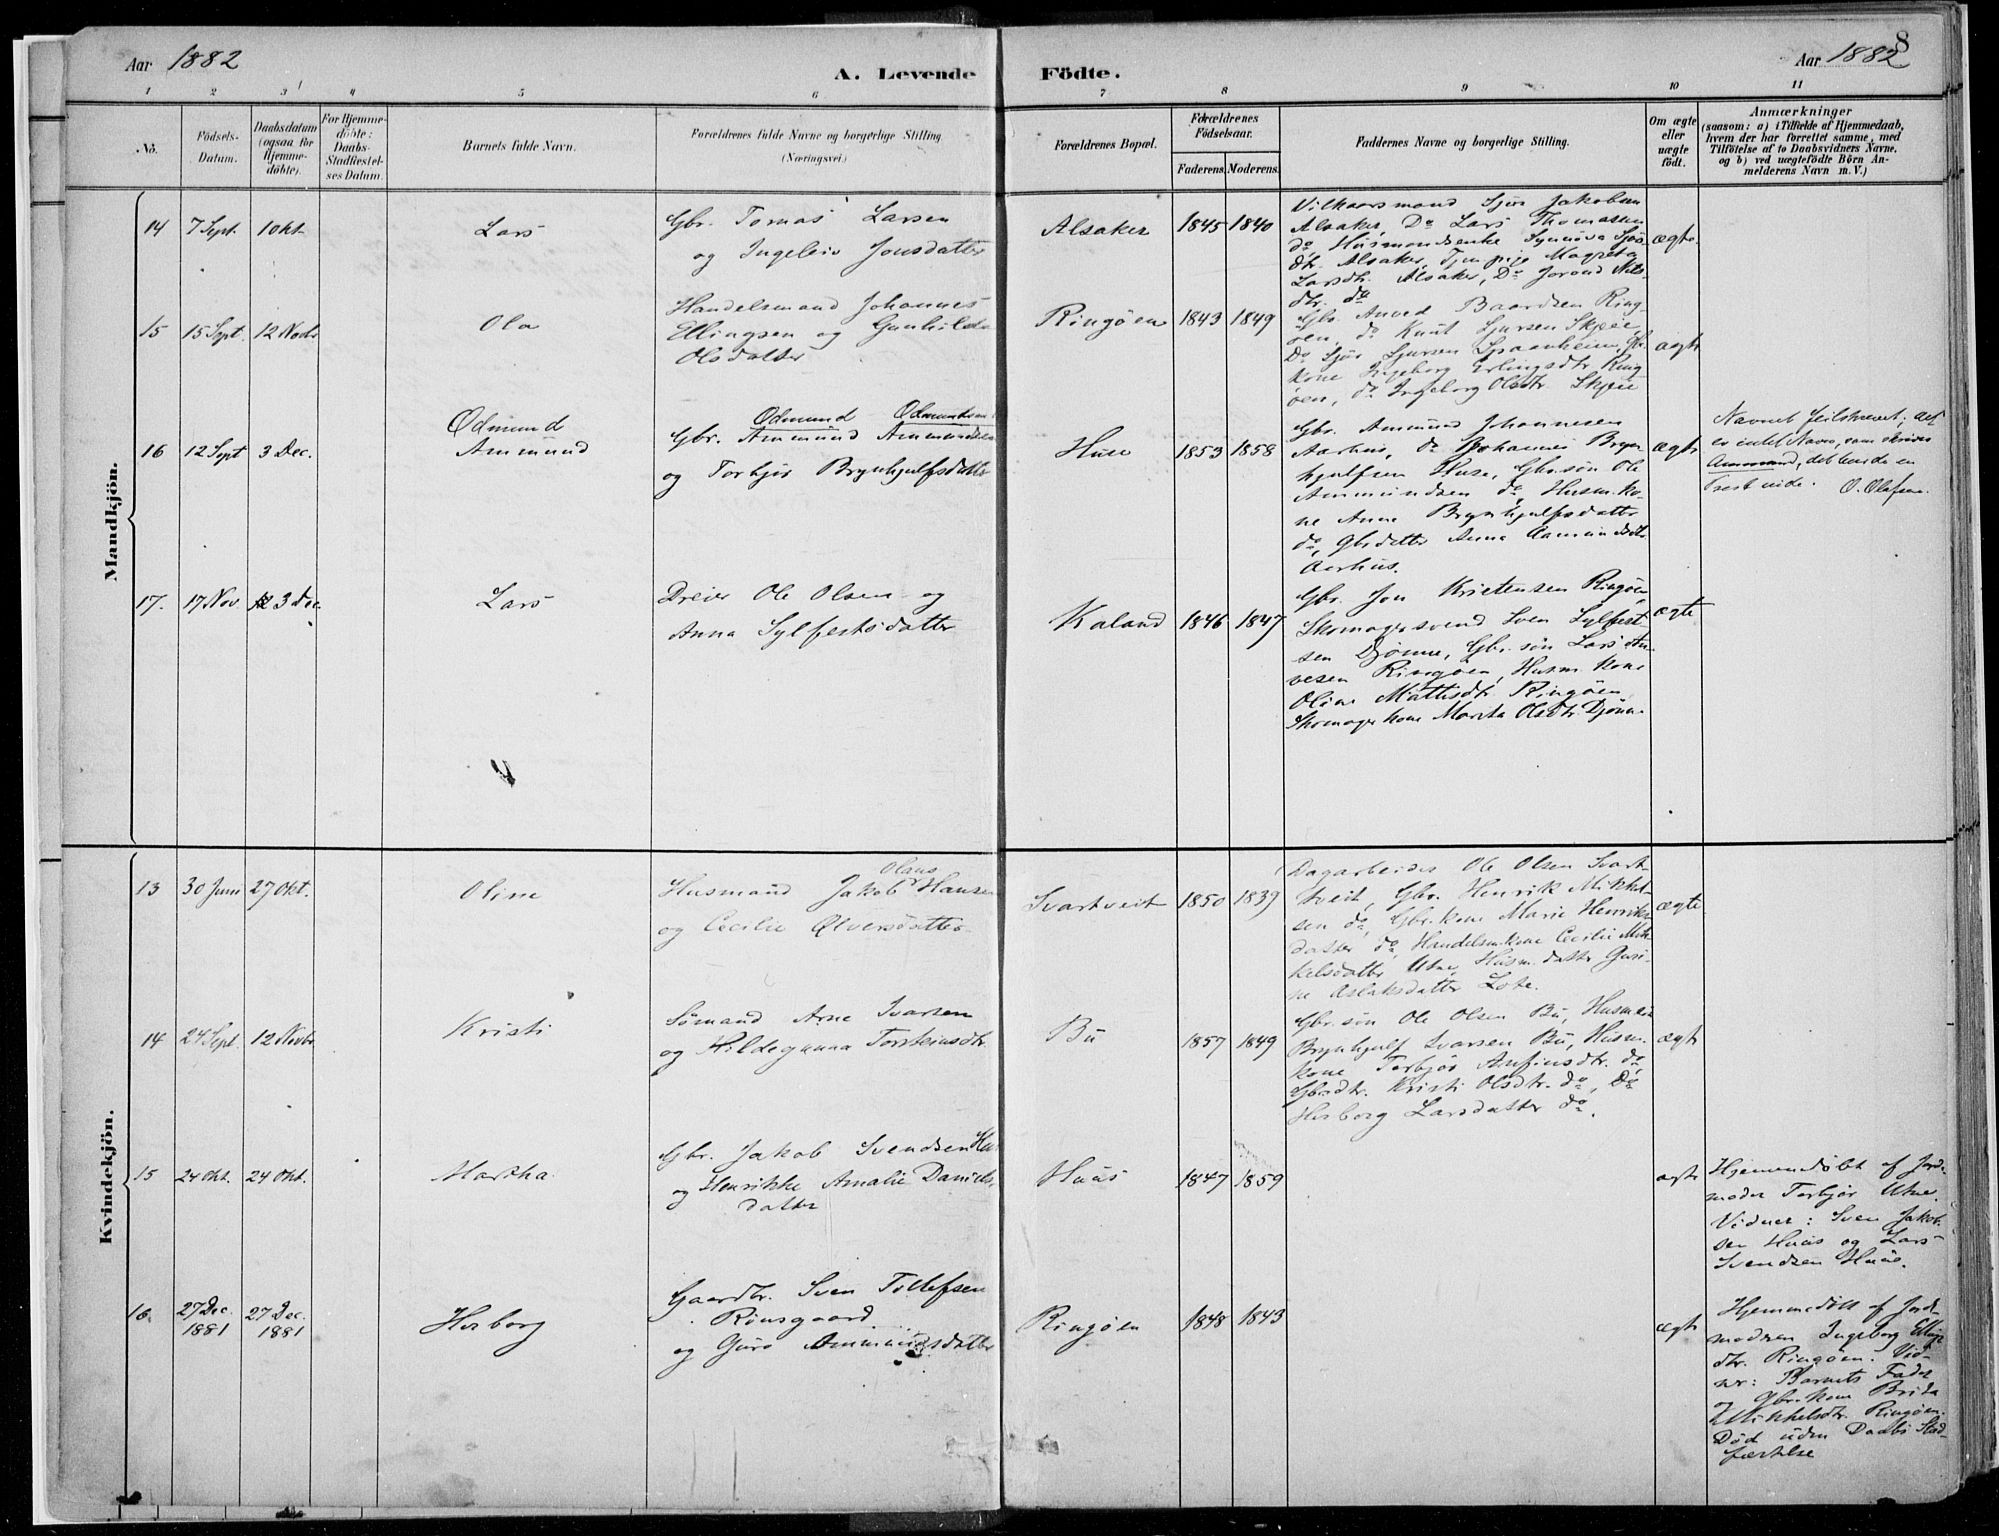 Aar 1882
A. Levende Födte.
Aar 1882
8
1 2 3 4 5 6 7 8 9 10 11
No.
Födsels-
Datum.
Daabsdatum
(ogsaa for
Hjemme-
döbte).
For Hjemme-
döbte:
Daabs-
Stadfæstel-
ses Datum.
Barnets fulde Navn.
Forældrenes fulde Navne og borgerlige Stilling.
(Næringsvei.)
Forældrenes Bopæl.
Forældrenes
Födselsaar.
Faderens. Moderens.
Faddernes Navne og borgerlige Stilling.
Om ægte
eller
uægte
födt.
Anmærkninger
(saasom: a) i Tilfælde af Hjemmedaab,
hvem der har forrettet samme, med
Tilföielse af to Daabsvidners Navne,
og b) ved uægtefödte Börn An-
melderens Navn m. V.)
Mandkjön.
14 7 Sept. 1 Okt. Lars
Gbr. Tomas Larsen
og Ingeleiv Jonsdatter
Alsaker 1845 1840
Vilkaarsmand Sjur Jakobsen
Alsaker, Do Lars Thomassen
do Husmandsenke Synnöva Sjur
dtr. Alsaker, Tjen.pige Magreta
Larsdtr. Alsaker, Do Jorand Nils-
dtr. do
ægte
15 15 Sept. 12 Novbr Ola
Handelsmand Johannes
Ellingsen og Gunhilda
Olsdatter
Ringøen 1843 1849
Gbr. Anved Baardsen Ring-
øen, do Knut Sjursen Skjeie,
Do Sjur Sjursen Spaanheim, Gbr.
kone Ingeborg Erlingsdtr Ring
øen, do Ingeborg Olsdtr Skjeie
ægte
16 12 Sept 3 Dec.
Ødmund
Ammund
Ødmund Ødmundsen
Gbr. Ammund Ammundsen
og Torbjør Brynhjulfsdatter
Huse 1853 1858
Gbr. Ammund Johannesen
Aarhus, do Johannes Bryn-
hjulfsen Huse, Gbr.søn Ole
Ammundsen do, Husm.ko-
ne Anna Brynhjulfsdatter
do, Gbrdatter Anna Aamundsdtr
Aarhus.
ægte
Navnet feilskrevet; det
er intet Navn, som skrives
Ammund, det burde en
Præst vide. O. Olafsen.
17. 17 Nov. 3 Dec. Lars
Dreier Ole Olsen og
Anna Sylfestsdatter
Kaland 1846 1847
Gbr. Jon Kristensen Ringøen,
Skomagersvend Sven Sylfest-
sen Djønne, Gbr. søn Lars An-
vesen Ringøen, Husm. kone
Oline Mattisdtr. Ringøen,
Skomager kone Marita Olsdtr. Djønne
ægte
Kvindekjön.
13 30 Juni 27 Okt. Oline
Olaus
Husmand Jakob Hansen
og Cecilie Ølversdatter
Svartveit 1850 1839
Dagarbeider Ole Olsen Svart-
tveit, Gbr. Henrik Mikkel-
sen do, Gbr.kone Marie Henriks-
datter do, Handelsm.kone Cecilie Mik-
kelsdatter Utne, Husm.datter Guri-
ne Aslaksdatter Lote.
ægte
14 24 Sept. 12 Novbr. Kristi
Sømand Arne Ivarsen
og Hildegunna Torsteinsdtr.
Bu 1857 1849
Gbr.søn Ole Olsen Bu, Husmand
Brynhjulf Ivarsen Bu, Husm.
kone Torbjør Anfinsdtr. do,
Gbrdtr. Kristi Olsdtr. do, Do
Herborg Larsdatter do.
ægte
15 24 Okt. 24 Okt. Martha
Gbr. Jakob Svendsen Huus
og Henrikke Amalie Daniels-
datter
Huus 1847 1859
ægte
Hjemmedøbt af Jord-
moder Torbjør Utne.
Vidner: Sven Jakob-
sen Huus og Lars
Svendsen Huus.
16. 27 Dec. 1881 27 Dec. 1881 Herborg
Gaardbr. Sven Tollefsen
Rönsgaard
og Guro Ammundsdatter
Ringøen 1848 1843
ægte
Hjemmedøbt af Jord-
modren Ingeborg Ellings
dtr. Ringøen. Vid-
ner: Barnets Fader
og Gbr.kone Brita
Mikkelsdtr. Ringøen.
Død uden Daabs Stad-
fæstelse